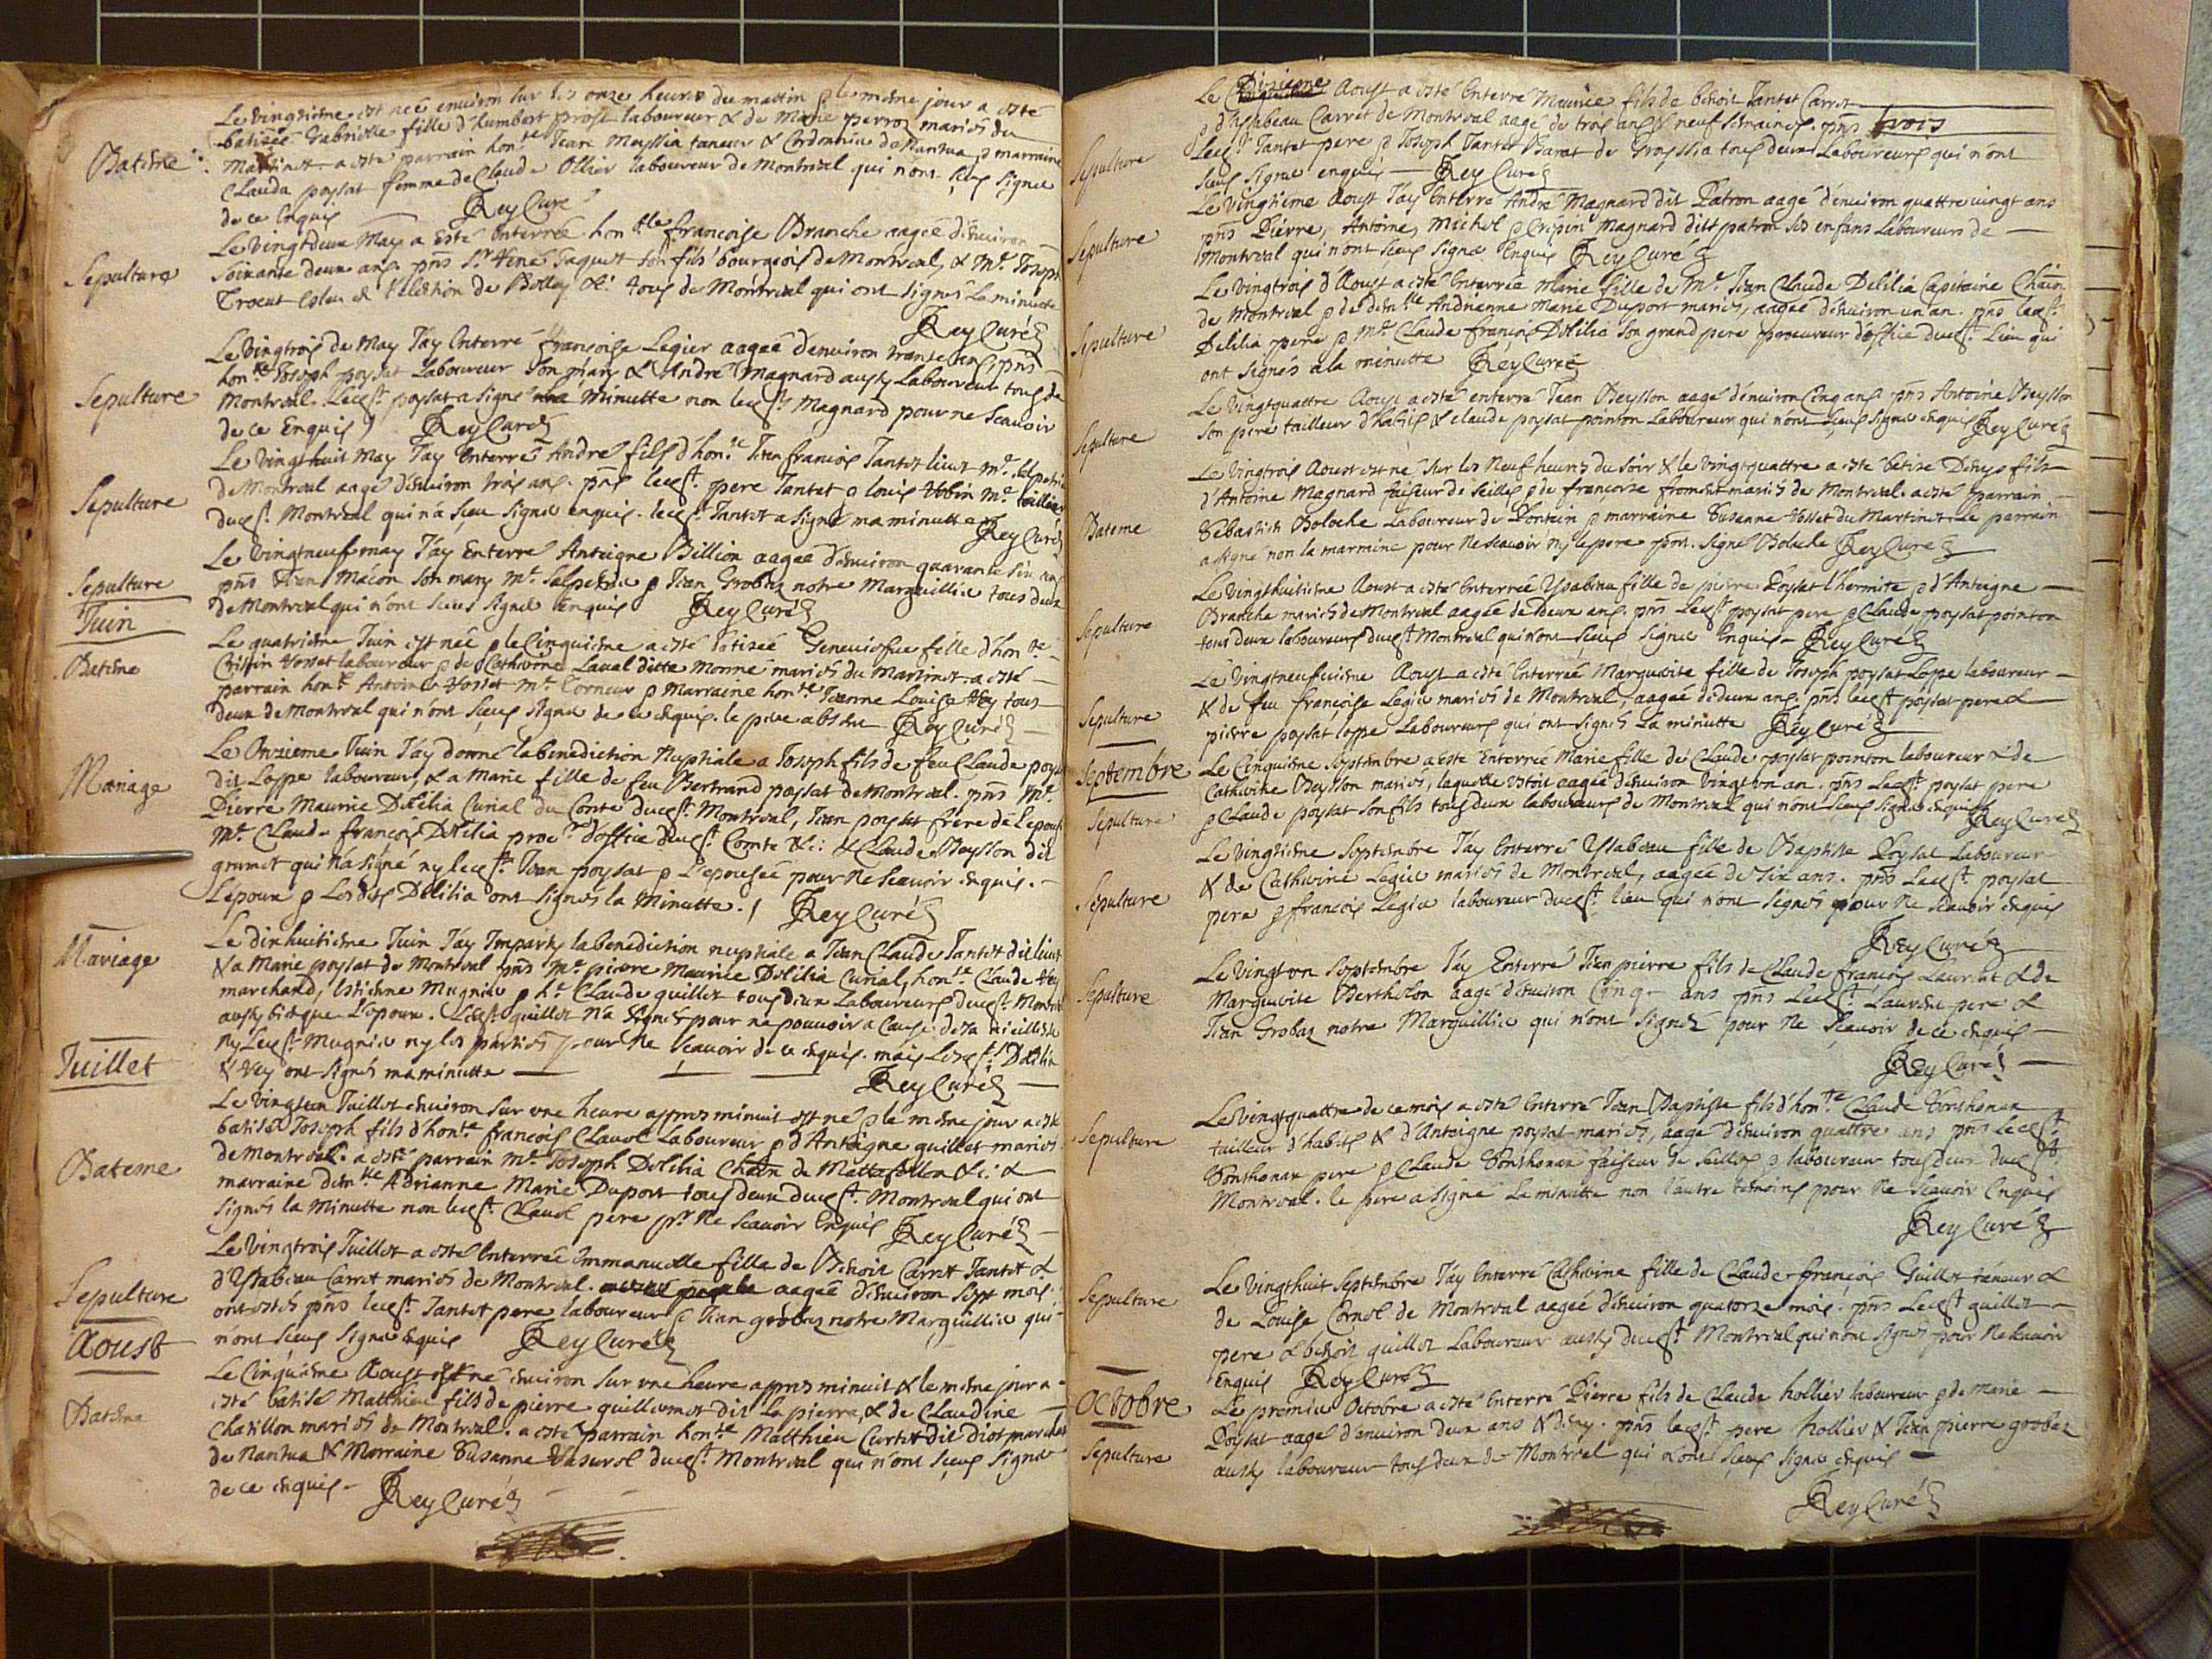 Le vingtieme est née environ sur les onze heures du mattin & le mesme jour a esté
batisée Gabrielle fille d'humbert prost laboureur & de Marie perroz mariés du
Bateme Martinet a esté parrain hon.te Jean Meyssia taneur & Cordonnier de Nantua & marraine
Clauda poysat femme de Claude Ollier laboureur de Montreal qui n'ont sceu signer
de ce Enquis Rey Curé
Le vingtdeux May a Esté Enterrée hon.lle francoise Branche aageé d'environ
Sepulture soixante deux ans. pñs S.r Aimé Jaquet son fils bourgeois de Montreal, & M.e Joseph
Trocut Esleu en l'election de Belley &c: tous de Montreal qui ont signés La minutte
Rey Curé
Le vingtrois de May J'ay Enterré francoise Legier aageé d'environ trante ans pñs
hon.te Joseph poysat Laboureur son mary & André Magnard aussy Laboureur tous de
Sepulture Montreal. Ledst. poysat a signé ma Minutte non ledst. Magnard pour ne Scavoir
de ce Enquis Rey Curé
Le vingthuit May J'ay Enterré André fils d'hon.te Jean francois Tantet M.e Salpetrier
Sepulture de Montreal aagé d'environ trois ans. pñs ledst. pere Tantet & louis M.e tailleur
dudst. Montreal qui n'a sceu signer enquis. ledst. Tantet a signé ma minutte Rey Curé
Le vingtneuf may J'ay Enterré Antoigne Billion aageé d'environ quarante six ans
Sepulture pñs Jean Mâcon son mary M.e Salpetrier & Jean Grobaz notre Marguillier tous deux
de Montreal qui n'ont sceu signer Enquis Rey Curé
Juin
Le quatrieme Juin est née & le Cinquieme a esté batisée Geneviefve fille d'hon.te
Bateme Crispin Vosset laboureur & de Catherine Laval ditte Monne mariés du Martinet a esté
parrain hon.te Antoine Vosset M.e Corneur & Marraine hon.te Jeanne Louise Rey tous
deux de Montreal qui n'ont sceus signer de ce enquis. le pere absent Rey Curé
Le Onzieme Juin J'ay donné la benediction Nuptiale a Joseph fils de feu Claude poysat
Mariage dit Loppe laboureur, & a Marie fille de feu Bertrand poysat de Montreal. pñs M.e
Pierre Maurice Delilia Curial du Conté dudst. Montreal, Jean poysat frere de L'epouse
M.e Claude francois Delilia proc.r d'office dudst. Comté &c: & Claude Beysson dit
grumet qui n'a signé ny ledst. Jean poysat & L'epousée pour ne scavoir enquis.
L'epoux & Lesdits Delilia ont signés la Minutte. Rey Curé
Le dixhuitieme Juin J'ay Imparty la benediction nuptiale a Jean Claude Tantet dit
Mariage & a Marie poysat de Montreal pñs M.e pierre Maurice Delilia Curial, hon.te Claude Rey
marchand, Estienne Mugnier & h.te Claude guillot tous deux Laboureurs dudst. Montreal
aussy bien que L'epoux. Ledst. guillot n'a signés pour ne pouvoir a Cause de sa vieillesse
ny Ledst. Mugnier ny les parties pour ne scavoir de ce enquis. mais Lesdst. S.r Delilia
& Rey ont signés ma minutte Rey Curé
Juillet
Le vingtun Juillet environ sur une heure appres minuit est né & le mesme jour a esté
batisé Joseph fils d'hon.te francois Clavel Laboureur & d'Antoigne guillot mariés
Bateme de Montreal. a esté parrain M.e Joseph Delilia & c: &
marraine dem.lle Adrianne Marie Duport tous deux dudst. Montreal qui ont
signés la Minutte non ledst. Clavel pere p.r ne scavoir Enquis Rey Curé
Le vingtrois Juillet a esté Enterrée Emmanuelle fille de Benoit Carret Tantet &
Sepulture d'Ysabeau Carret mariés de Montreal. aagée d'environ sept mois.
ont estés pñs ledst. Tantet pere laboureur & Jean grobaz notre Marguillier qui
n'ont sceus signer Enquis Rey Curé
Aoust
Le Cinquieme Aoust est né environ sur une heure appres minuit & le mesme jour a
Bateme esté batisé Matthieu fils de pierre guillermet dit La pierre, & de Claudine
Chatillon mariés de Montreal. a esté parrain hon.te Matthieu Curtet dit Diot marchand
de Nantua & Marraine Susanne dudst. Montreal qui n'ont sceus signer
de ce enquis Rey Curé
Le Dixieme Aoust a esté Enterré Maurice fils de benoit Tantet Carret
Sepulture & d'Issabeau Carret de Montreal aagé de trois ans & neuf semaines. pñs trois
Ledst. Tantet pere & Joseph Tantet Barat de Groyssia tous deux Laboureurs qui n'ont
sceus signer enquis Rey Curé
Le vingtieme Aoust J'ay Enterré André Magnard dit Patron aagé d'environ quattre vingt ans
Sepulture pñs Pierre, Antoine, Michel & Crispin Magnard dits patron ses enfans Laboureurs de
Montreal qui n'ont sceus signer Enquis Rey Curé
Le vingtrois d'Aoust a esté Enterrée Marie fille de M.e Jean Claude Delilia Capitaine Chatn.
Sepulture de Montreal & de dem.lle Andrianne Marie Duport mariés, aageé d'environ un an. pñs ledst.
Delilia pere & M.e Claude francois Delilia son grand pere procureur d'office dudst. Lieu qui
ont signés a la minutte Rey Curé
Le vingtquattre Aoust a esté enterré Jean Beysson aagé d'environ Cinq ans. pñs Antoine Beysson
Sepulture son pere tailleur d'habits & claude poysat pointon Laboureur qui n'ont sceus signer enquis Rey Curé
Le vingtrois Aoust est né sur les Neuf heures du soir & le vingtquattre a esté batisé Denys fils
d'Antoine Magnard faiseur de seilles & de francoise froment mariés de Montreal. a esté parrain
Bateme Sebastien Boloche Laboureur de Pontein & marraine Susanne Vosset du Martinet Le parrain
a signé non la marraine pour ne scavoir ny le pere pñt. signé Boloche Rey Curé
Le vingthuitieme Aoust a esté Enterrée Ysabeau fille de pierre Poysat l'hermite & d'Antoigne
Sepulture Branche mariés de Montreal aagée de deux ans. pñs Ledst poysat pere & Claude poysat pointon
tous deux laboureurs dudst Montreal qui n'ont sceus signer Enquis Rey Curé
Le vingtneufvieme Aoust a esté Enterreé Marguerite fille de Joseph poysat Loppe laboureur
Sepulture & de feu francoise Legier mariés de Montreal, aageé de deux ans. pñs ledst poysat pere &
pierre poysat loppe Laboureurs qui ont signés La minutte Rey Curé
Septembre Le Cinquieme Septembre a Esté Enterrée Marie fille de Claude poysat pointon laboureur & de
Catherine Beysson mariés, laquelle estoit aagée d'environ vingt un an. pñs Ledst. poysat pere
Sepulture & Claude poysat son fils tous deux laboureurs de Montreal qui n'ont sceus signer enquis Rey Curé
Le vingtieme Septembre J'ay Enterré Ysabeau fille de Baptiste Poysat Laboureur
Sepulture & de Catherine Legier mariés de Montreal, aagée de six ans. pñs Ledst. poysat
pere & francois Legier laboureur dudst. lieu qui n'ont signés pour ne scavoir enquis
Rey Curé
Le vingtun Septembre J'ay Enterré Jean pierre fils de Claude francois Laurent & de
Sepulture Marguerite Bertholon aagé d'environ Cinq ans pñs Ledst. Laurent pere &
Jean Grobaz notre Marguillier qui n'ont signés pour ne scavoir de ce enquis
Rey Curé
Le vingtquattre de ce mois a esté Enterré Jean Baptiste fils d'hon.te Claude Sonthonax
Sepulture tailleur d'habits & d'Antoigne poysat mariés, aagé d'environ quattre ans pñs Ledst.
Sonthonax pere & Claude Sonthonax faiseur de seilles & laboureur tous deux dudst.
Montreal. le pere a signé La minutte non l'autre temoins pour ne scavoir Enquis
Rey Curé
Le vingthuit Septembre J'ay Enterré Catherine fille de Claude francois Guillot taneur &
Sepulture de Louise Cornet de Montreal aageé d'environ quatorze mois. pñs Ledst guillot
pere & benoit guillot Laboureur aussy dudst. Montreal qui n'ont signés pour ne scavoir
Enquis Rey Curé
Octobre Le premier Octobre a esté Enterré Pierre fils de Claude hollier laboureur & de Marie
Poysat aagé d'environ deux ans & demy. pñs ledst. pere hollier & Jean pierre grobaz
Sepulture aussy laboureur tous deux de Montreal qui n'ont sceus signer enquis
Rey Curé